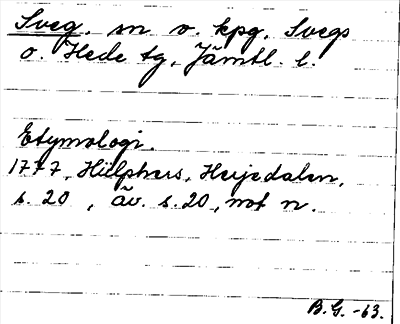 Sveg, sn o. kpg, Svegs
o. Hede tg, Jämtl. l.
Etymologi.
1777, Hülphers, Herjedalen,
s. 20, äv. s. 20, not n.
B.G. -63.